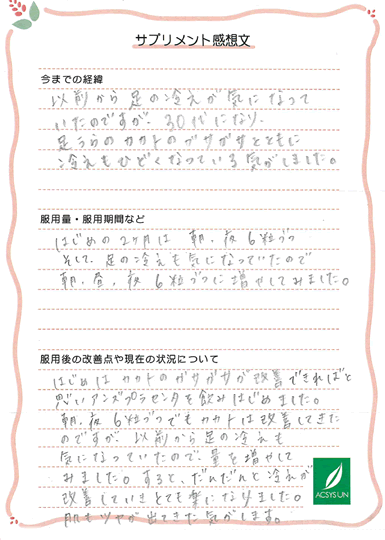 サプリメント感想文
今までの経緯
以前から足の冷えが気になって
いたのですが、30代になり、
足うらのカカトのガサガサとともに
冷えもひどくなっている気がしました。
服用量・服用期間など
はじめの2ヶ月は 朝、夜 6粒づつ
そして、足の冷えも気になっていたので
朝、昼、夜 6粒づつに増やしてみました。
服用後の改善点や現在の状況について
はじめは カカトのガサガサが改善できればと
思いアンズプラセンタを飲みはじめました。
朝、夜 6粒づつでもカカトは改善してきた
のですが、以前から足の冷えも
気になっていたので、量を増やして
みました。すると、だんだんと冷えが
改善していきとても楽になりました。
肌もツヤが出てきた気がします。
ACSYS UN